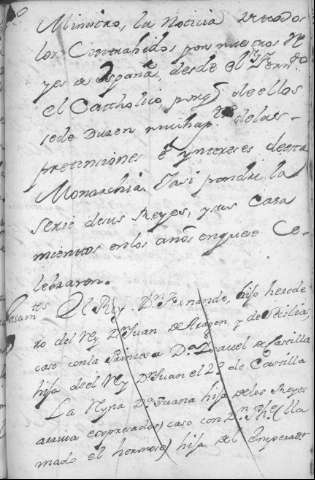 Ministro, la Noticia de todos
los Contrahidos por nuestros R
yes de españa, desde el Sr. Ferndo
el Catholico, porq de ellos
se deducen muchas de las
pretenciones e yntereses de esta
Monarchia. Y asi pondre la
serie de sus Reyes, y sus Casa
mientos en los años en que se Ce
lebraron.
El Rey Dn. Fernando, hijo herede
ro del Rey Dn Juan de Aragon, y de Sicilia,
caso con la Da. Isauel de Castilla
hija de el Rey Dn Juan el 2 de Castilla
La Reyna Da. Juana hija de los Reyes
caso con Dn. Phe
mado el hermoso) hijo del Emperador